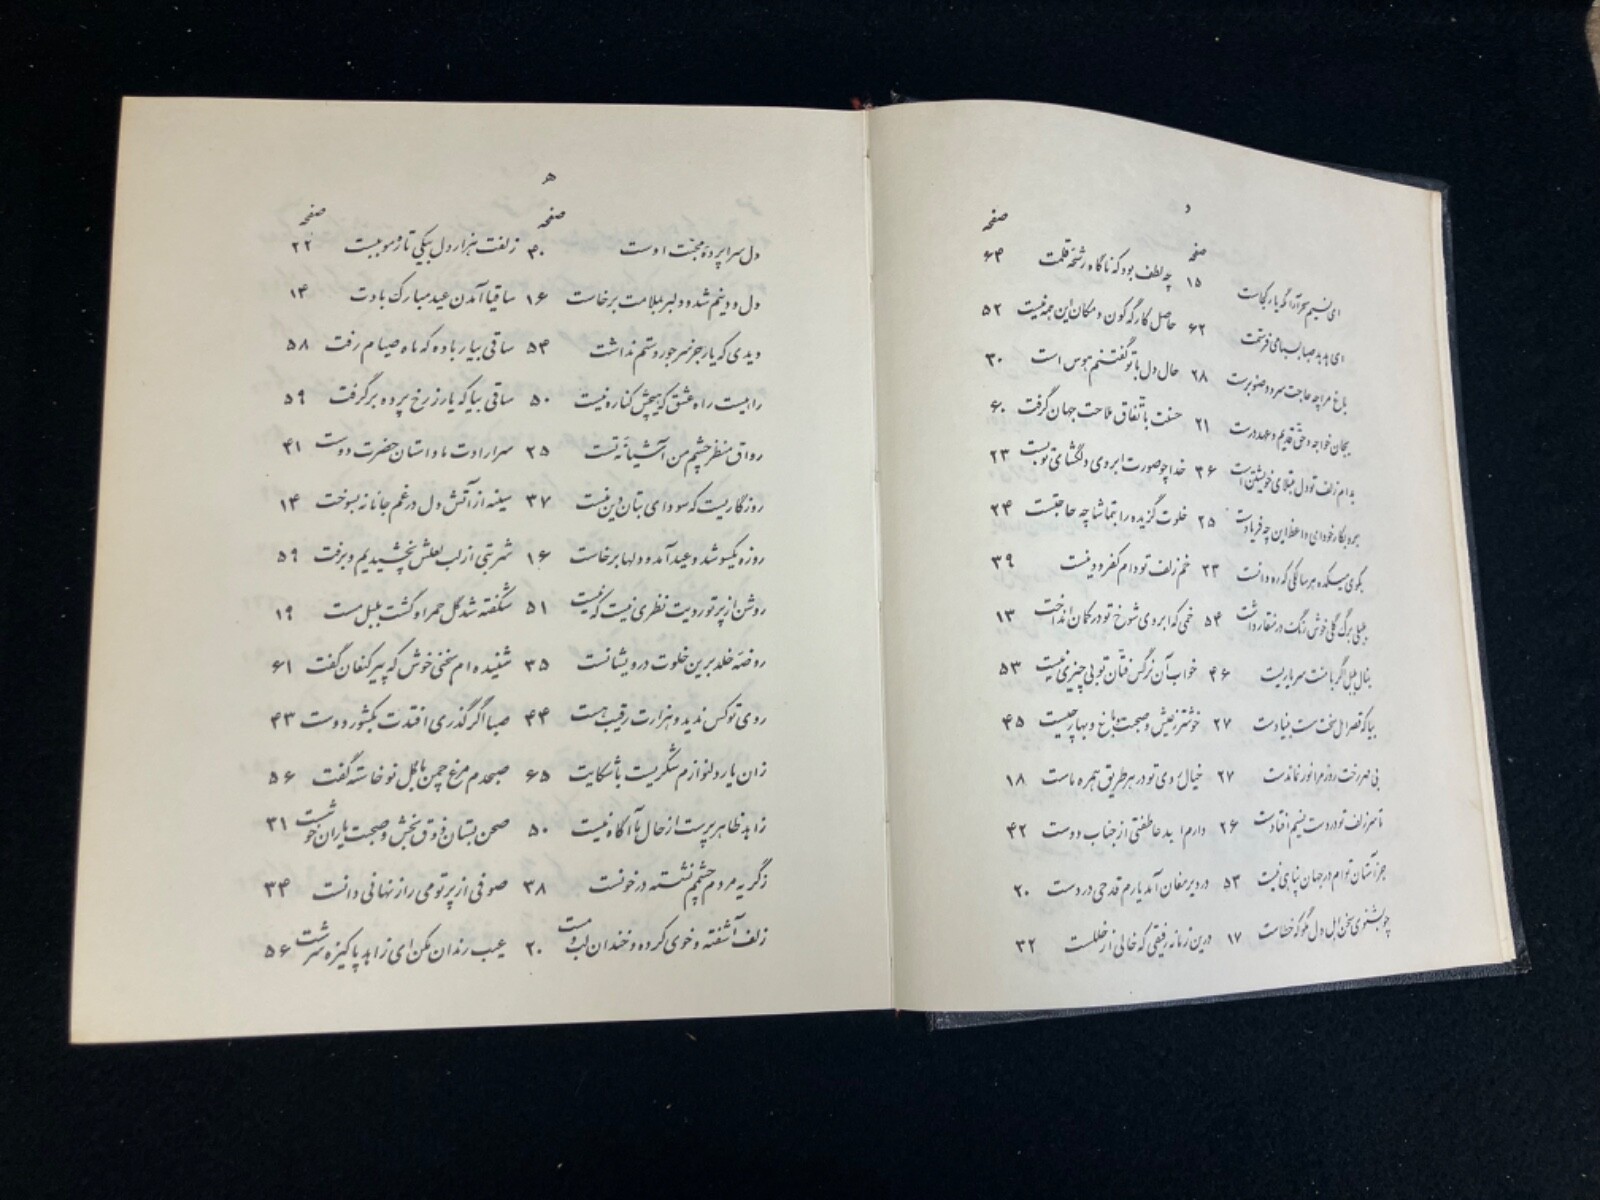 د
صفحه
صفحه
ای نسیم سحر آرامگه یار کجاست ۱۵ چه لطف بود که ناگاه رشحه قلمت ۶۴
ای هدهد صبا بسبا می فرستمت ۶۲ حاصل کارگه کون و مکان این همه نیست ۵۲
باغ مرا چه حاجت سرو و صنوبرست ۲۸ حال دل با تو گفتنم هوس است ۳۰
بجان خواجه و حق قدیم و عهد درست ۲۱ حسنت باتفاق ملاحت جهان گرفت ۶۰
بدام زلف تو دل مبتلای خویشتن است ۳۶ خدا چو صورت ابروی دلگشای تو بست ۲۳
برو بکار خود ای واعظ این چه فریادست ۲۵ خلوت گزیده را بتماشا چه حاجتست ۲۴
بکوی میکده هر سالکی که ره دانست ۲۳ خم زلف تو دام کفر و دینست ۳۹
بلبلی برگ گلی خوش رنگ در منقار داشت ۵۴ خمی که ابروی شوخ تو در کمان انداخت ۱۳
بنال بلبل اگر با منت سر یاریست ۴۶ خواب آن نرگس فتان تو بی چیزی نیست ۵۳
بیا که قصر امل سخت سست بنیادست ۲۷ خوشتر ز عیش و صحبت باغ و بهار چیست ۴۵
بی مهر رخت روز مرا نور نماندست ۲۷ خیال روی تو در هر طریق همره ماست ۱۸
تا سر زلف تو در دست نسیم افتادست ۲۶ دارم امید عاطفتی از جناب دوست ۴۲
جز آستان توام در جهان پناهی نیست ۵۳ در دیر مغان آمد یارم قدحی در دست ۲۰
چو بشنوی سخن اهل دل مگو که خطاست ۱۷ درین زمانه رفیقی که خالی از خللست ۳۲
ه
صفحه
صفحه
دل سراپرده محبت اوست ۴۰ زلفت هزار دل بیکی تار مو ببست ۲۲
دل و دینم شد و دلبر بملامت برخاست ۱۶ ساقیا آمدن عید مبارک بادت ۱۴
دیدی که یار جز سر جور و ستم نداشت ۵۴ ساقی بیار باده که ماه صیام رفت ۵۸
راهیست راه عشق که هیچش کناره نیست ۵۰ ساقی بیا که یار ز رخ پرده بر گرفت ۵۹
رواق منظر چشم من آشیانه تست ۲۵ سر ارادت ما و آستان حضرت دوست ۴۱
روزگاریست که سودای بتان دین منست ۳۷ سینه از آتش دل در غم جانانه بسوخت ۱۴
روزه یکسو شد و عید آمد و دلها برخاست ۱۶ شربتی از لب لعلش نچشیدیم و برفت ۵۹
روشن از پرتو رویت نظری نیست که نیست ۵۱ شکفته شد گل حمرا و گشت بلبل مست ۱۹
روضه خلد برین خلوت درویشانست ۳۵ شنیده ام سخنی خوش که پیر کنعان گفت ۶۱
روی تو کس ندید و هزارت رقیب هست ۴۴ صبا اگر گذری افتدت بکشور دوست ۴۳
زان یار دلنوازم شکریست با شکایت ۶۵ صبحدم مرغ چمن با گل نو خاسته گفت ۵۶
زاهد ظاهر پرست از حال ما آگاه نیست ۵۰ صحن بستان ذوق بخش و صحبت یاران خوشست ۳۱
ز گریه مردم چشمم نشسته در خونست ۳۸ صوفی از پرتو می راز نهانی دانست ۳۴
زلف آشفته و خوی کرده و خندان لب و مست ۲۰ عیب رندان مکن ای زاهد پاکیزه سرشت ۵۶